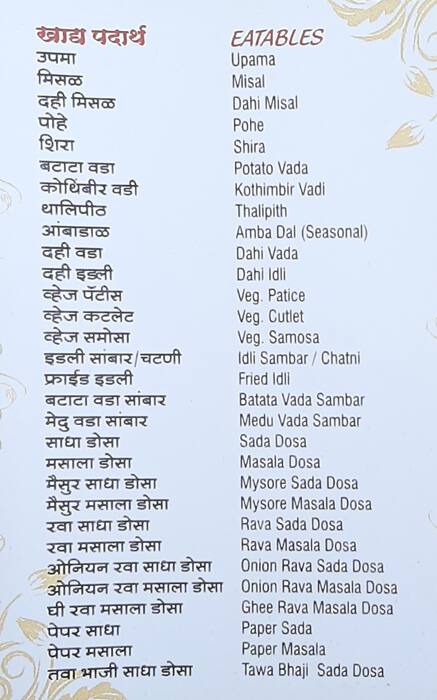 खाद्य पदार्थ EATABLES
उपमा Upama
मिसळ Misal
दही मिसळ Dahi Misal
पोहे Pohe
शिरा Shira
बटाटा वडा Potato Vada
कोथिंबीर वडी Kothimbir Vadi
थालिपीठ Thalipith
आंबाडाळ Amba Dal (Seasonal)
दही वडा Dahi Vada
दही इडली Dahi Idli
व्हेज पॅटीस Veg. Patice
व्हेज कटलेट Veg. Cutlet
व्हेज समोसा Veg. Samosa
इडली सांबार/चटणी Idli Sambar / Chatni
फ्राईड इडली Fried Idli
बटाटा वडा सांबार Batata Vada Sambar
मेदु वडा सांबार Medu Vada Sambar
साधा डोसा Sada Dosa
मसाला डोसा Masala Dosa
मैसुर साधा डोसा Mysore Sada Dosa
मैसुर मसाला डोसा Mysore Masala Dosa
रवा साधा डोसा Rava Sada Dosa
रवा मसाला डोसा Rava Masala Dosa
ओनियन रवा साधा डोसा Onion Rava Sada Dosa
ओनियन रवा मसाला डोसा Onion Rava Masala Dosa
घी रवा मसाला डोसा Ghee Rava Masala Dosa
पेपर साधा Paper Sada
पेपर मसाला Paper Masala
तवा भाजी साधा डोसा Tawa Bhaji Sada Dosa